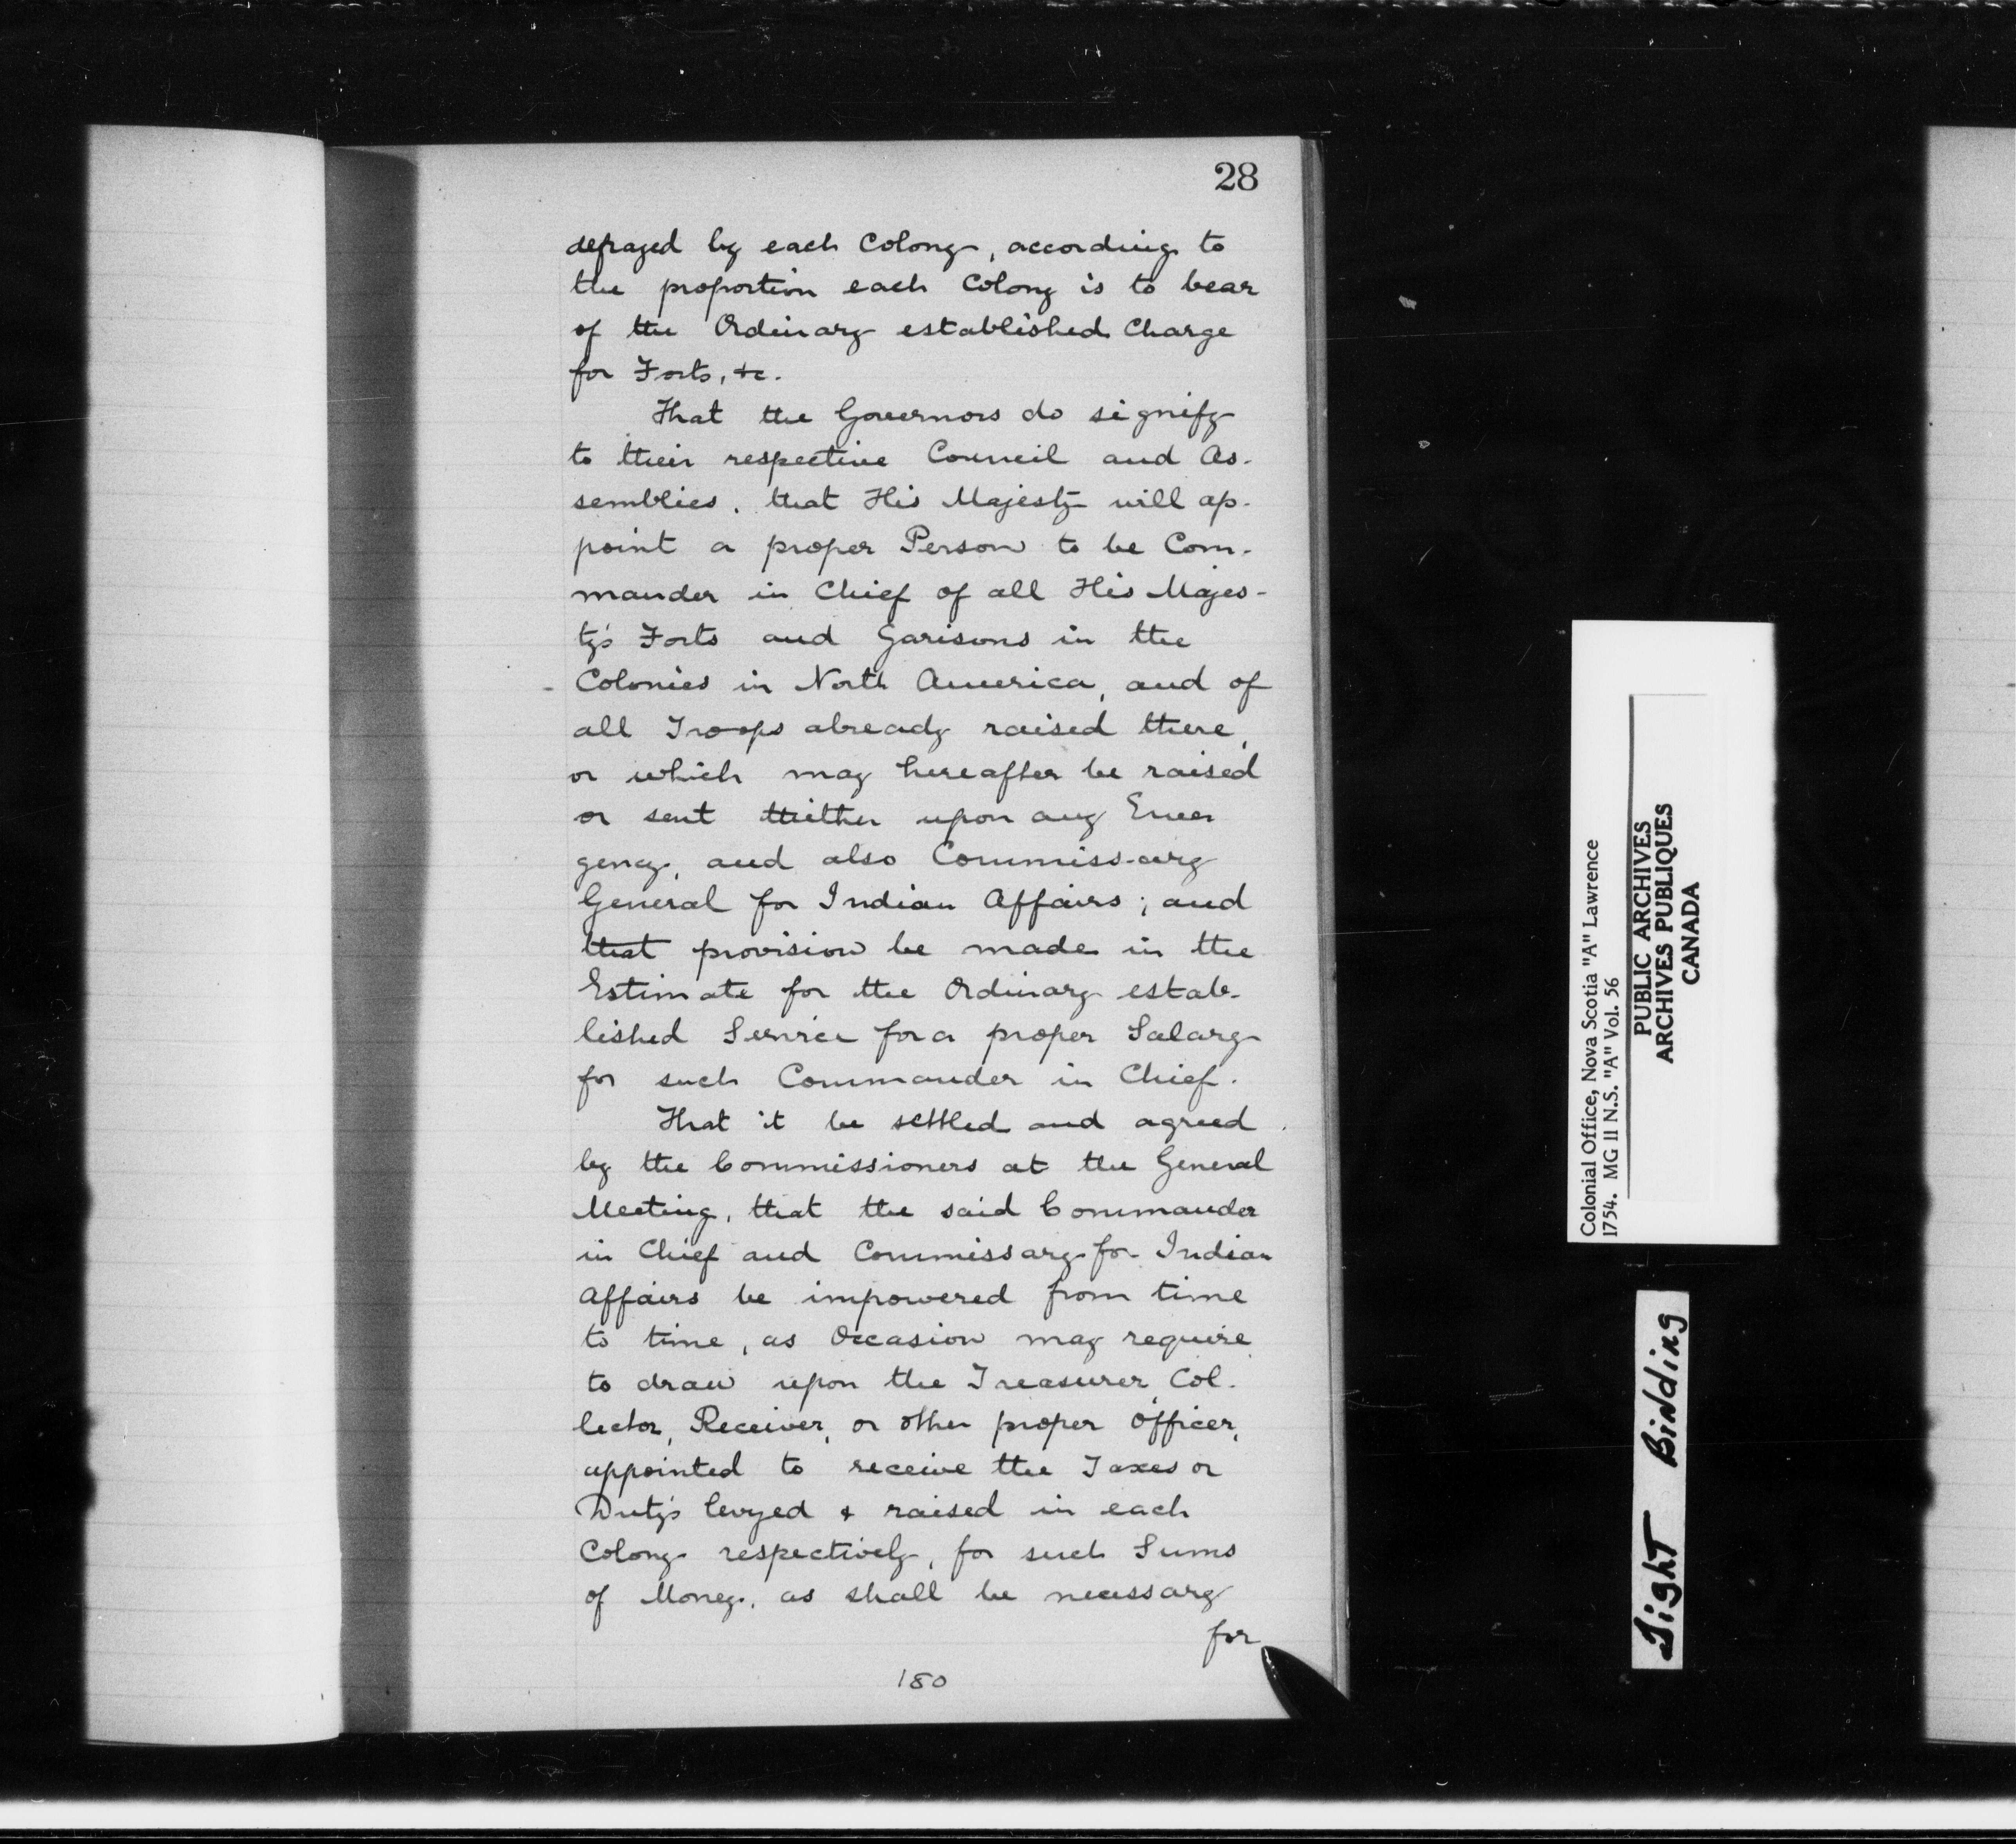 28
defrayed by each Colony, according to
the proportion each Colony is to bear
of the Ordinary established Charge
for Forts, &c.
That the Governors do signify
to their respective Council and As-
semblies, that His Majesty will ap-
point a proper Person to be Com-
mander in Chief of all His Majes-
ty's Forts and Garisons in the
Colonies in North America, and of
all Troops already raised there,
or which may hereafter be raised
or sent thither upon any Emer
gency, and also Commiss-ary
General for Indian Affairs; and
that provision be made in the
Estimate for the Ordinary estab-
lished Service for a proper Salary
for such Commander in Chief.
That it be settled and agreed
by the Commissioners at the General
Meeting, that the said Commander
in Chief and Commissary for Indian
Affairs be impowered from time
to time, as Occasion may require
to draw upon the Treasurer, Col-
lector, Receiver, or other proper Officer,
appointed to receive the Taxes or
Duty's levyed & raised in each
Colony respectively, for such Sums
of Money, as shall be necessary
for
180
Colonial Office, Nova Scotia "A" Lawrence
1754. MG II N.S. "A" Vol. 56
PUBLIC ARCHIVES
ARCHIVES PUBLIQUES
CANADA
Tight Binding